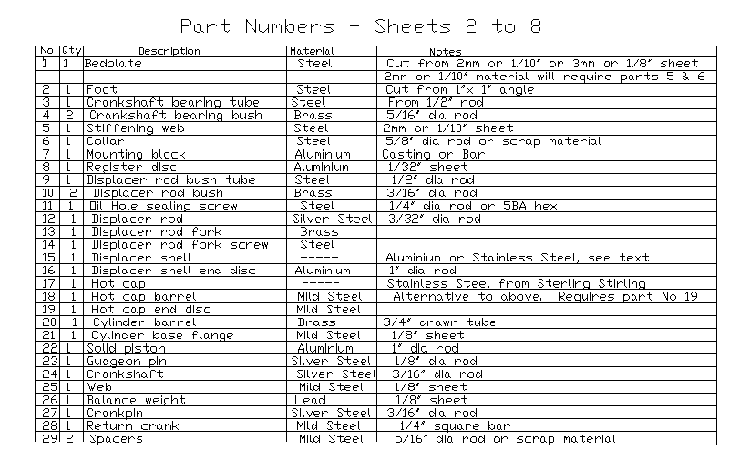 Part Numbers - Sheets 2 to 8
No Qty Description Material Notes
1 1 Bedplate Steel Cut from 2mm or 1/10" or 3mm or 1/8" sheet
2mm or 1/10" material will require parts 5 & 6
2 1 Foot Steel Cut from 1"x 1" angle
3 1 Crankshaft bearing tube Steel From 1/2" rod
4 2 Crankshaft bearing bush Brass 5/16" dia rod
5 1 Stiffening web Steel 2mm or 1/10" sheet
6 1 Collar Steel 5/8" dia rod or scrap material
7 1 Mounting block Aluminium Casting or Bar
8 1 Register disc Aluminium 1/32" sheet
9 1 Displacer rod bush tube Steel 1/2" dia rod
10 2 Displacer rod bush Brass 3/16" dia rod
11 1 Oil Hole sealing screw Steel 1/4" dia rod or 5BA hex
12 1 Displacer rod Silver Steel 3/32" dia rod
13 1 Displacer rod fork Brass
14 1 Displacer rod fork screw Steel
15 1 Displacer shell ----- Aluminium or Stainless Steel, see text
16 1 Displacer shell end disc Aluminium 1" dia rod
17 1 Hot cap ----- Stainless Steel from Sterling Stirling
18 1 Hot cap barrel Mild Steel Alternative to above. Requires part No 19
19 1 Hot cap end disc Mild Steel
20 1 Cylinder barrel Brass 3/4" drawn tube
21 1 Cylinder base flange Mild Steel 1/8" sheet
22 1 Solid piston Aluminium 1" dia rod
23 1 Gudgeon pin Silver Steel 1/8" dia rod
24 1 Crankshaft Silver Steel 3/16" dia rod
25 1 Web Mild Steel 1/8" sheet
26 1 Balance weight Lead 1/8" sheet
27 1 Crankpin Silver Steel 3/16" dia rod
28 1 Return crank Mild Steel 1/4" square bar
29 2 Spacers Mild Steel 5/16" dia rod or scrap material